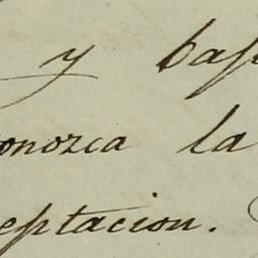 y baj
onozca la
eptacion.